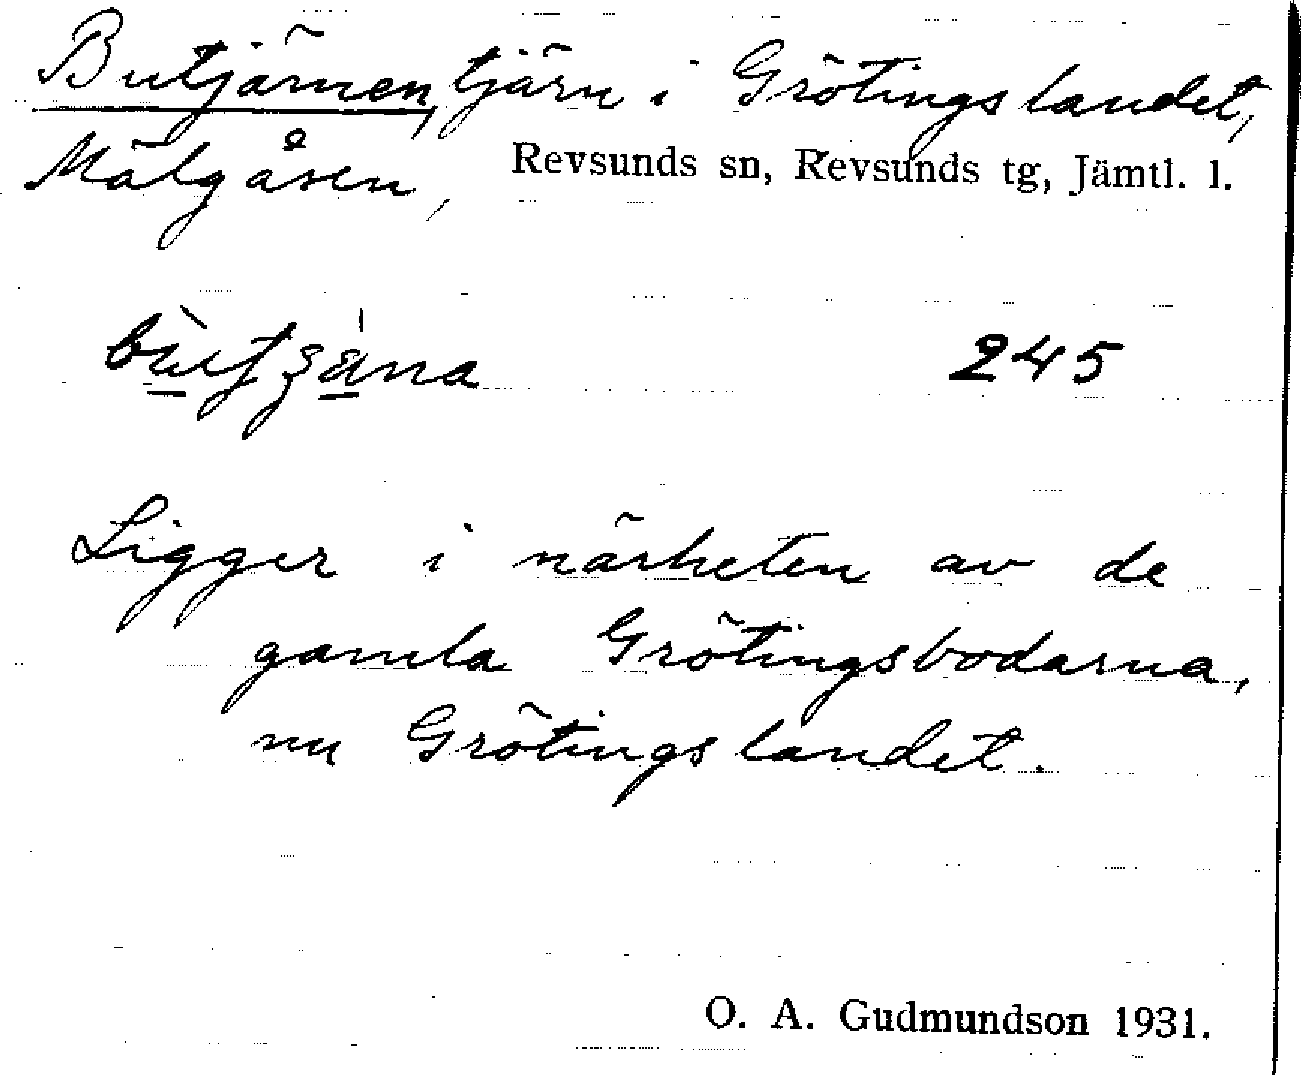 Butjärnen, tjärn i Grötingslandet,
Mälgåsen, Revsunds sn, Revsunds tg, Jämtl. l.
245
Ligger i närheten av de
gamla Grötingsbodarna,
nu Grötingslandet.
O. A. Gudmundson 1931.